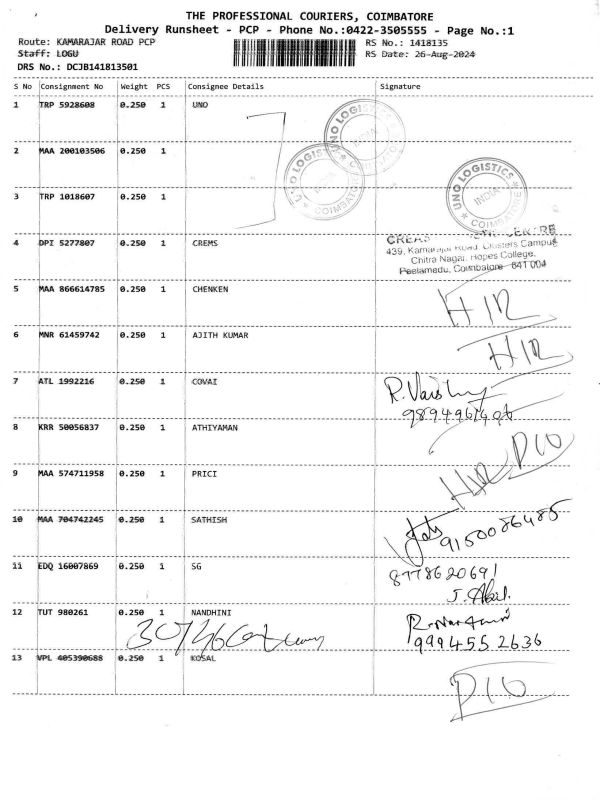 THE PROFESSIONAL COURIERS, COIMBATORE
Delivery Runsheet - PCP - Phone No.:0422-3505555 - Page No.:1
Route: KAMARAJAR ROAD PCP
RS No.: 1418135
Staff: LOGU
RS Date: 26-Aug-2024
DRS No.: DCJB141813501
S No Consignment No Weight PCS Consignee Details Signature
1 TRP 5928608 0.250 1 UNO
UNO LOGISTICS INDIA COIMBATORE
2 MAA 200103506 0.250 1
UNO LOGISTICS INDIA COIMBATORE
3 TRP 1018607 0.250 1
UNO LOGISTICS INDIA COIMBATORE
4 DPI 5277807 0.250 1 CREMS
439, Kamarajar Road, Clusters Campus
Chitra Nagar, Hopes College,
Peelamedu, Coimbatore - 641 004
5 MAA 866614785 0.250 1 CHENKEN
6 MNR 61459742 0.250 1 AJITH KUMAR
7 ATL 1992216 0.250 1 COVAI
8 KRR 50056837 0.250 1 ATHIYAMAN
9 MAA 574711958 0.250 1 PRICI
10 MAA 704742245 0.250 1 SATHISH
9150086485
11 EDQ 16007869 0.250 1 SG
8778620691
12 TUT 980261 0.250 1 NANDHINI
9994552636
13 VPL 405390688 0.250 1 KOSAL